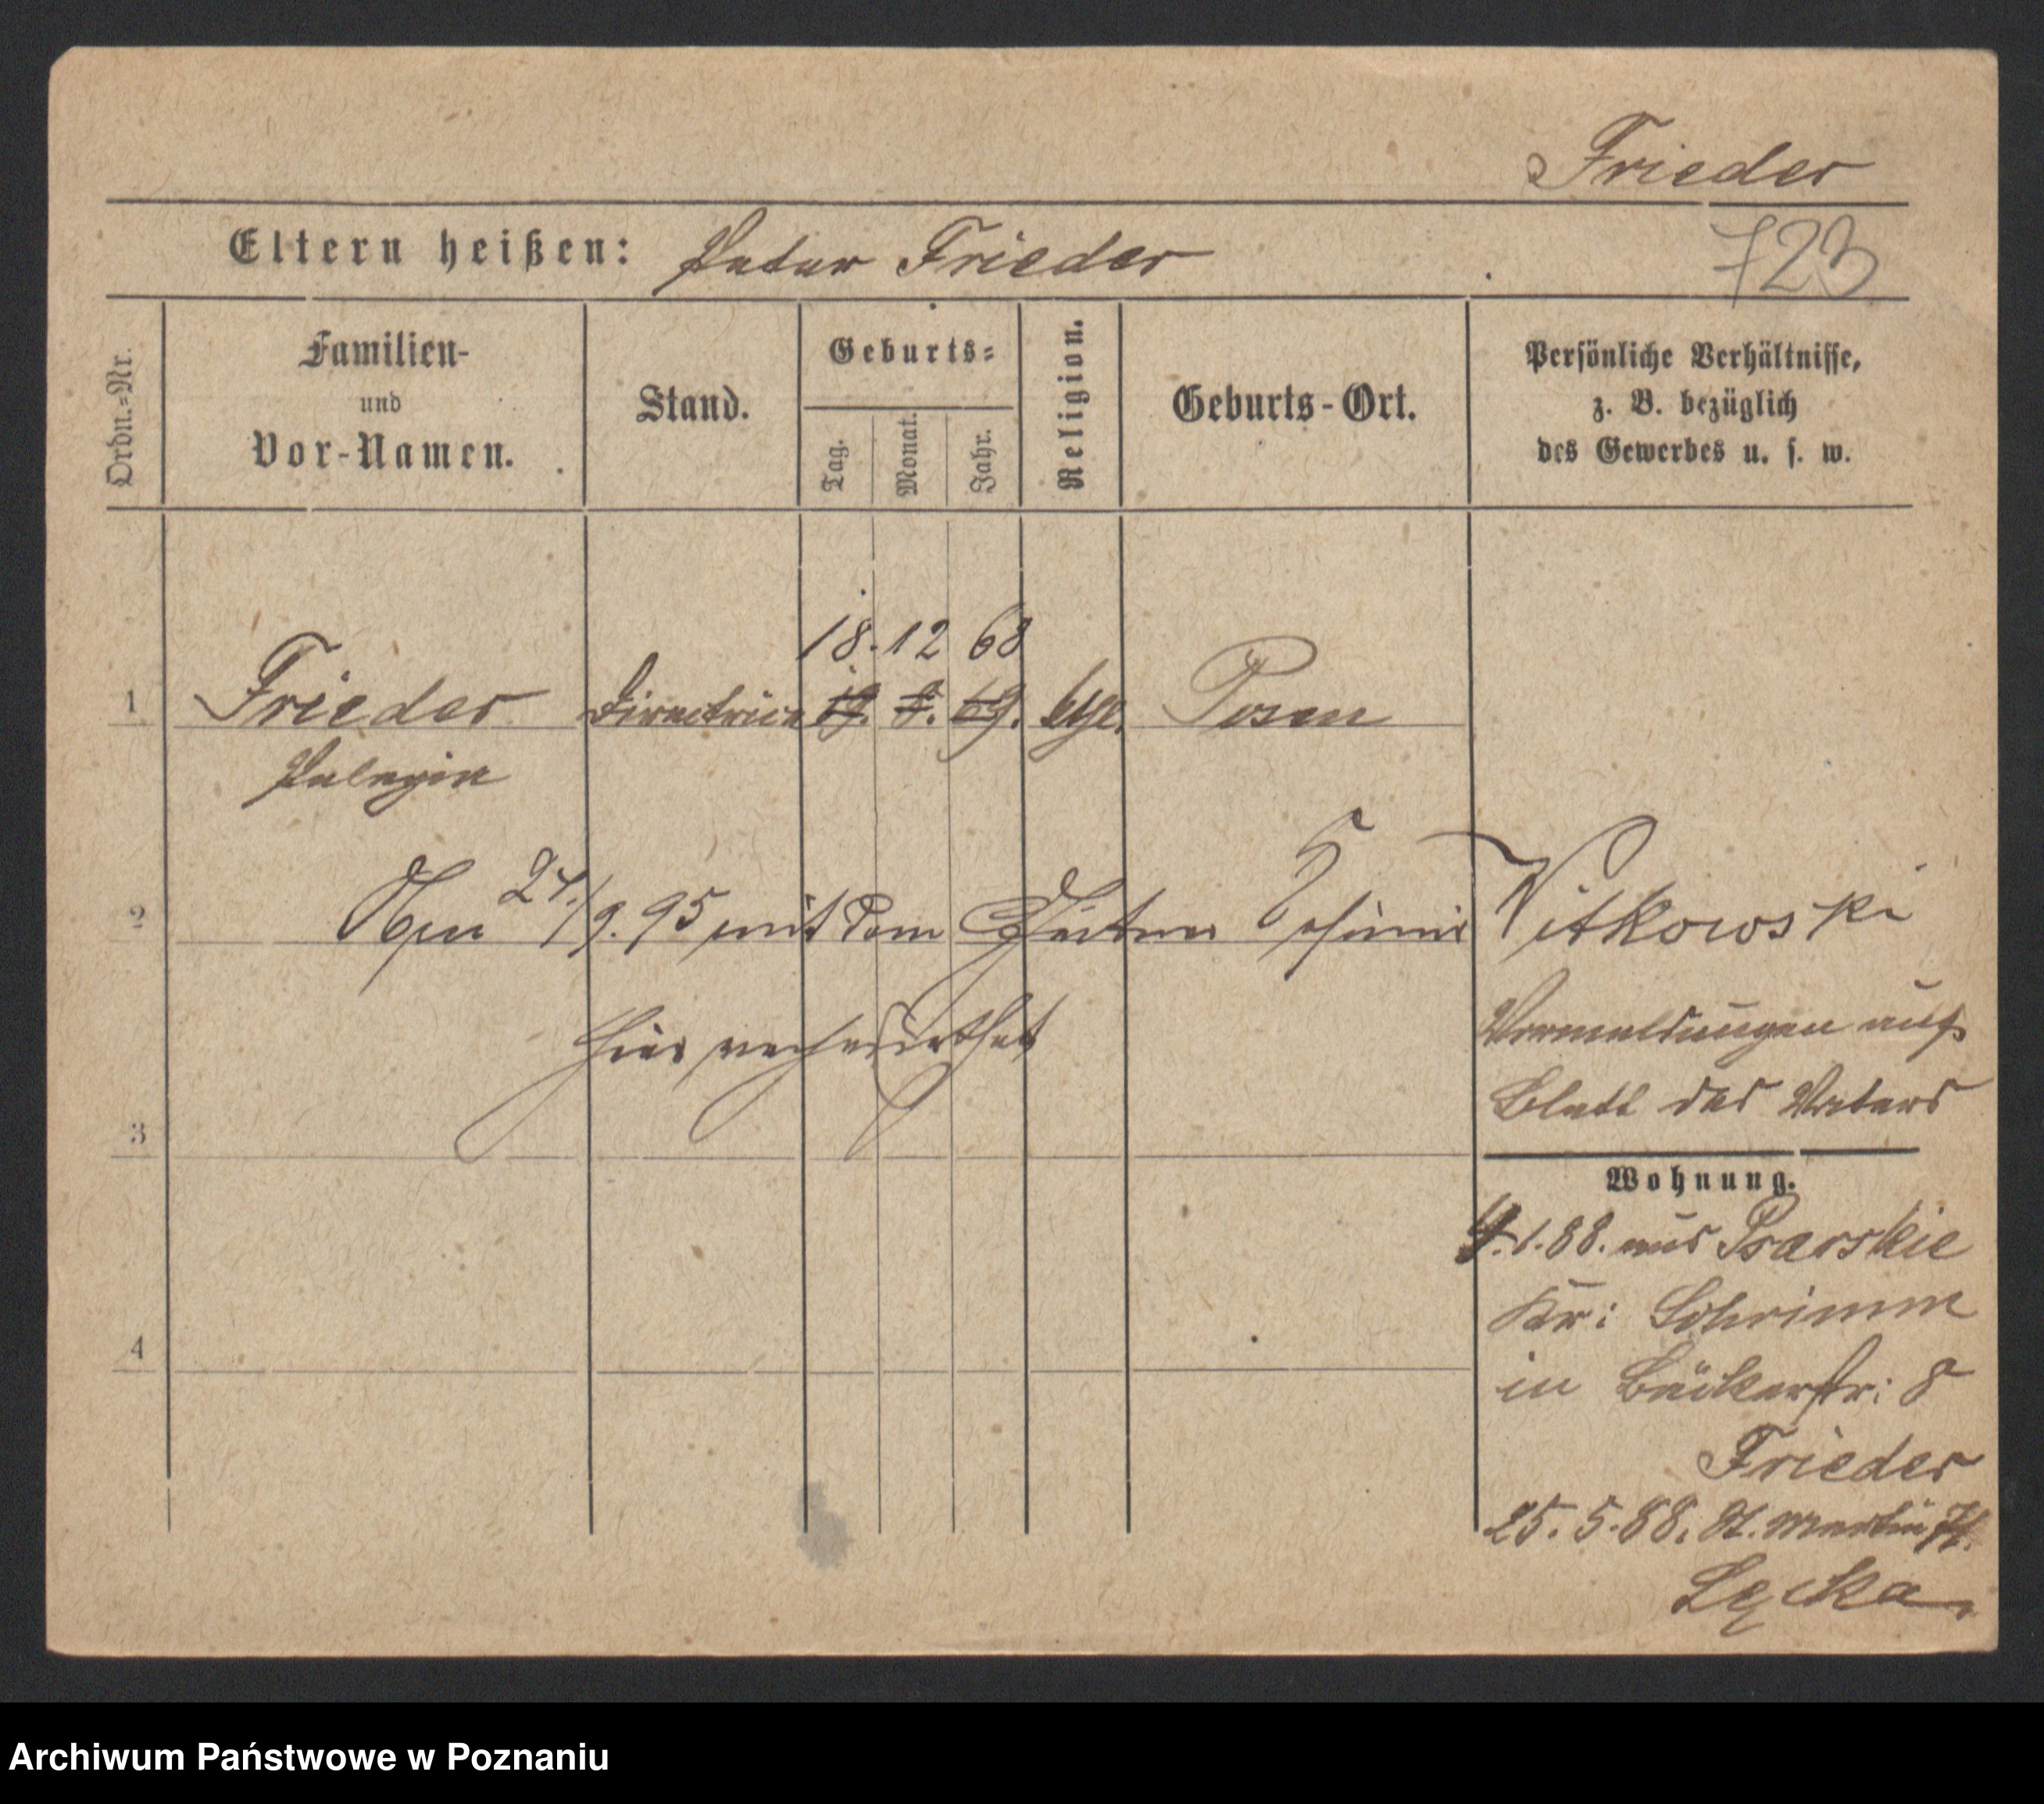 Frieder
Eltern heißen: Peter Frieder
723
Ordn.-Nr.
Familien-
und
Vor-Namen.
Stand.
Geburts-
Tag.
Monat.
Jahr.
Religion.
Geburts-Ort.
Persönliche Verhältnisse,
z. B. bezüglich
des Gewerbes u. s. w.
18. 12 68
1 Frieder Directrice 19. 9. 69. Posen
Pelagia
2 24./9. 95 mit dem Witkowski
hier verheirathet
Vormeldungen auf
Blatt des Vaters
3
Wohnung.
4.1.88. aus Psarskie
Kr: Schrimm
in Bäckerstr: 8
4
Frieder
25. 5. 88. St. Martin
Łęcka
Archiwum Państwowe w Poznaniu